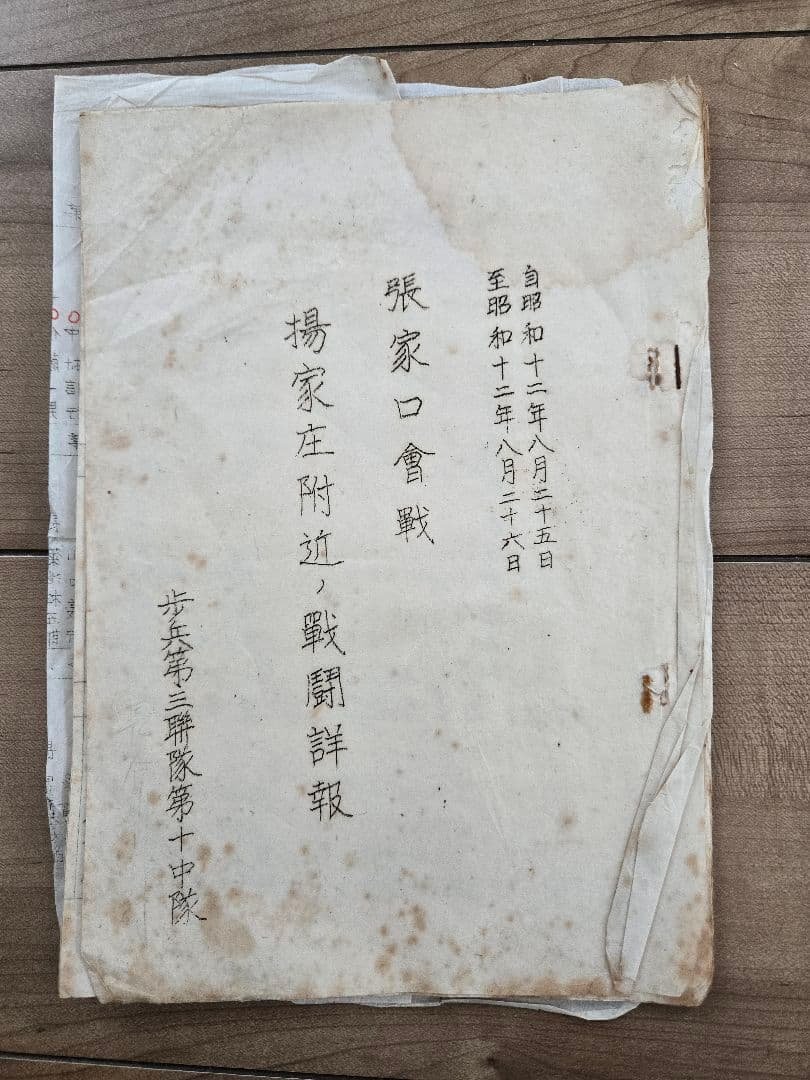 自昭和十二年八月二十五日
至昭和十二年八月二十六日
張家口會戰
揚家庄附近ノ戰鬪詳報
歩兵第三聯隊第十中隊